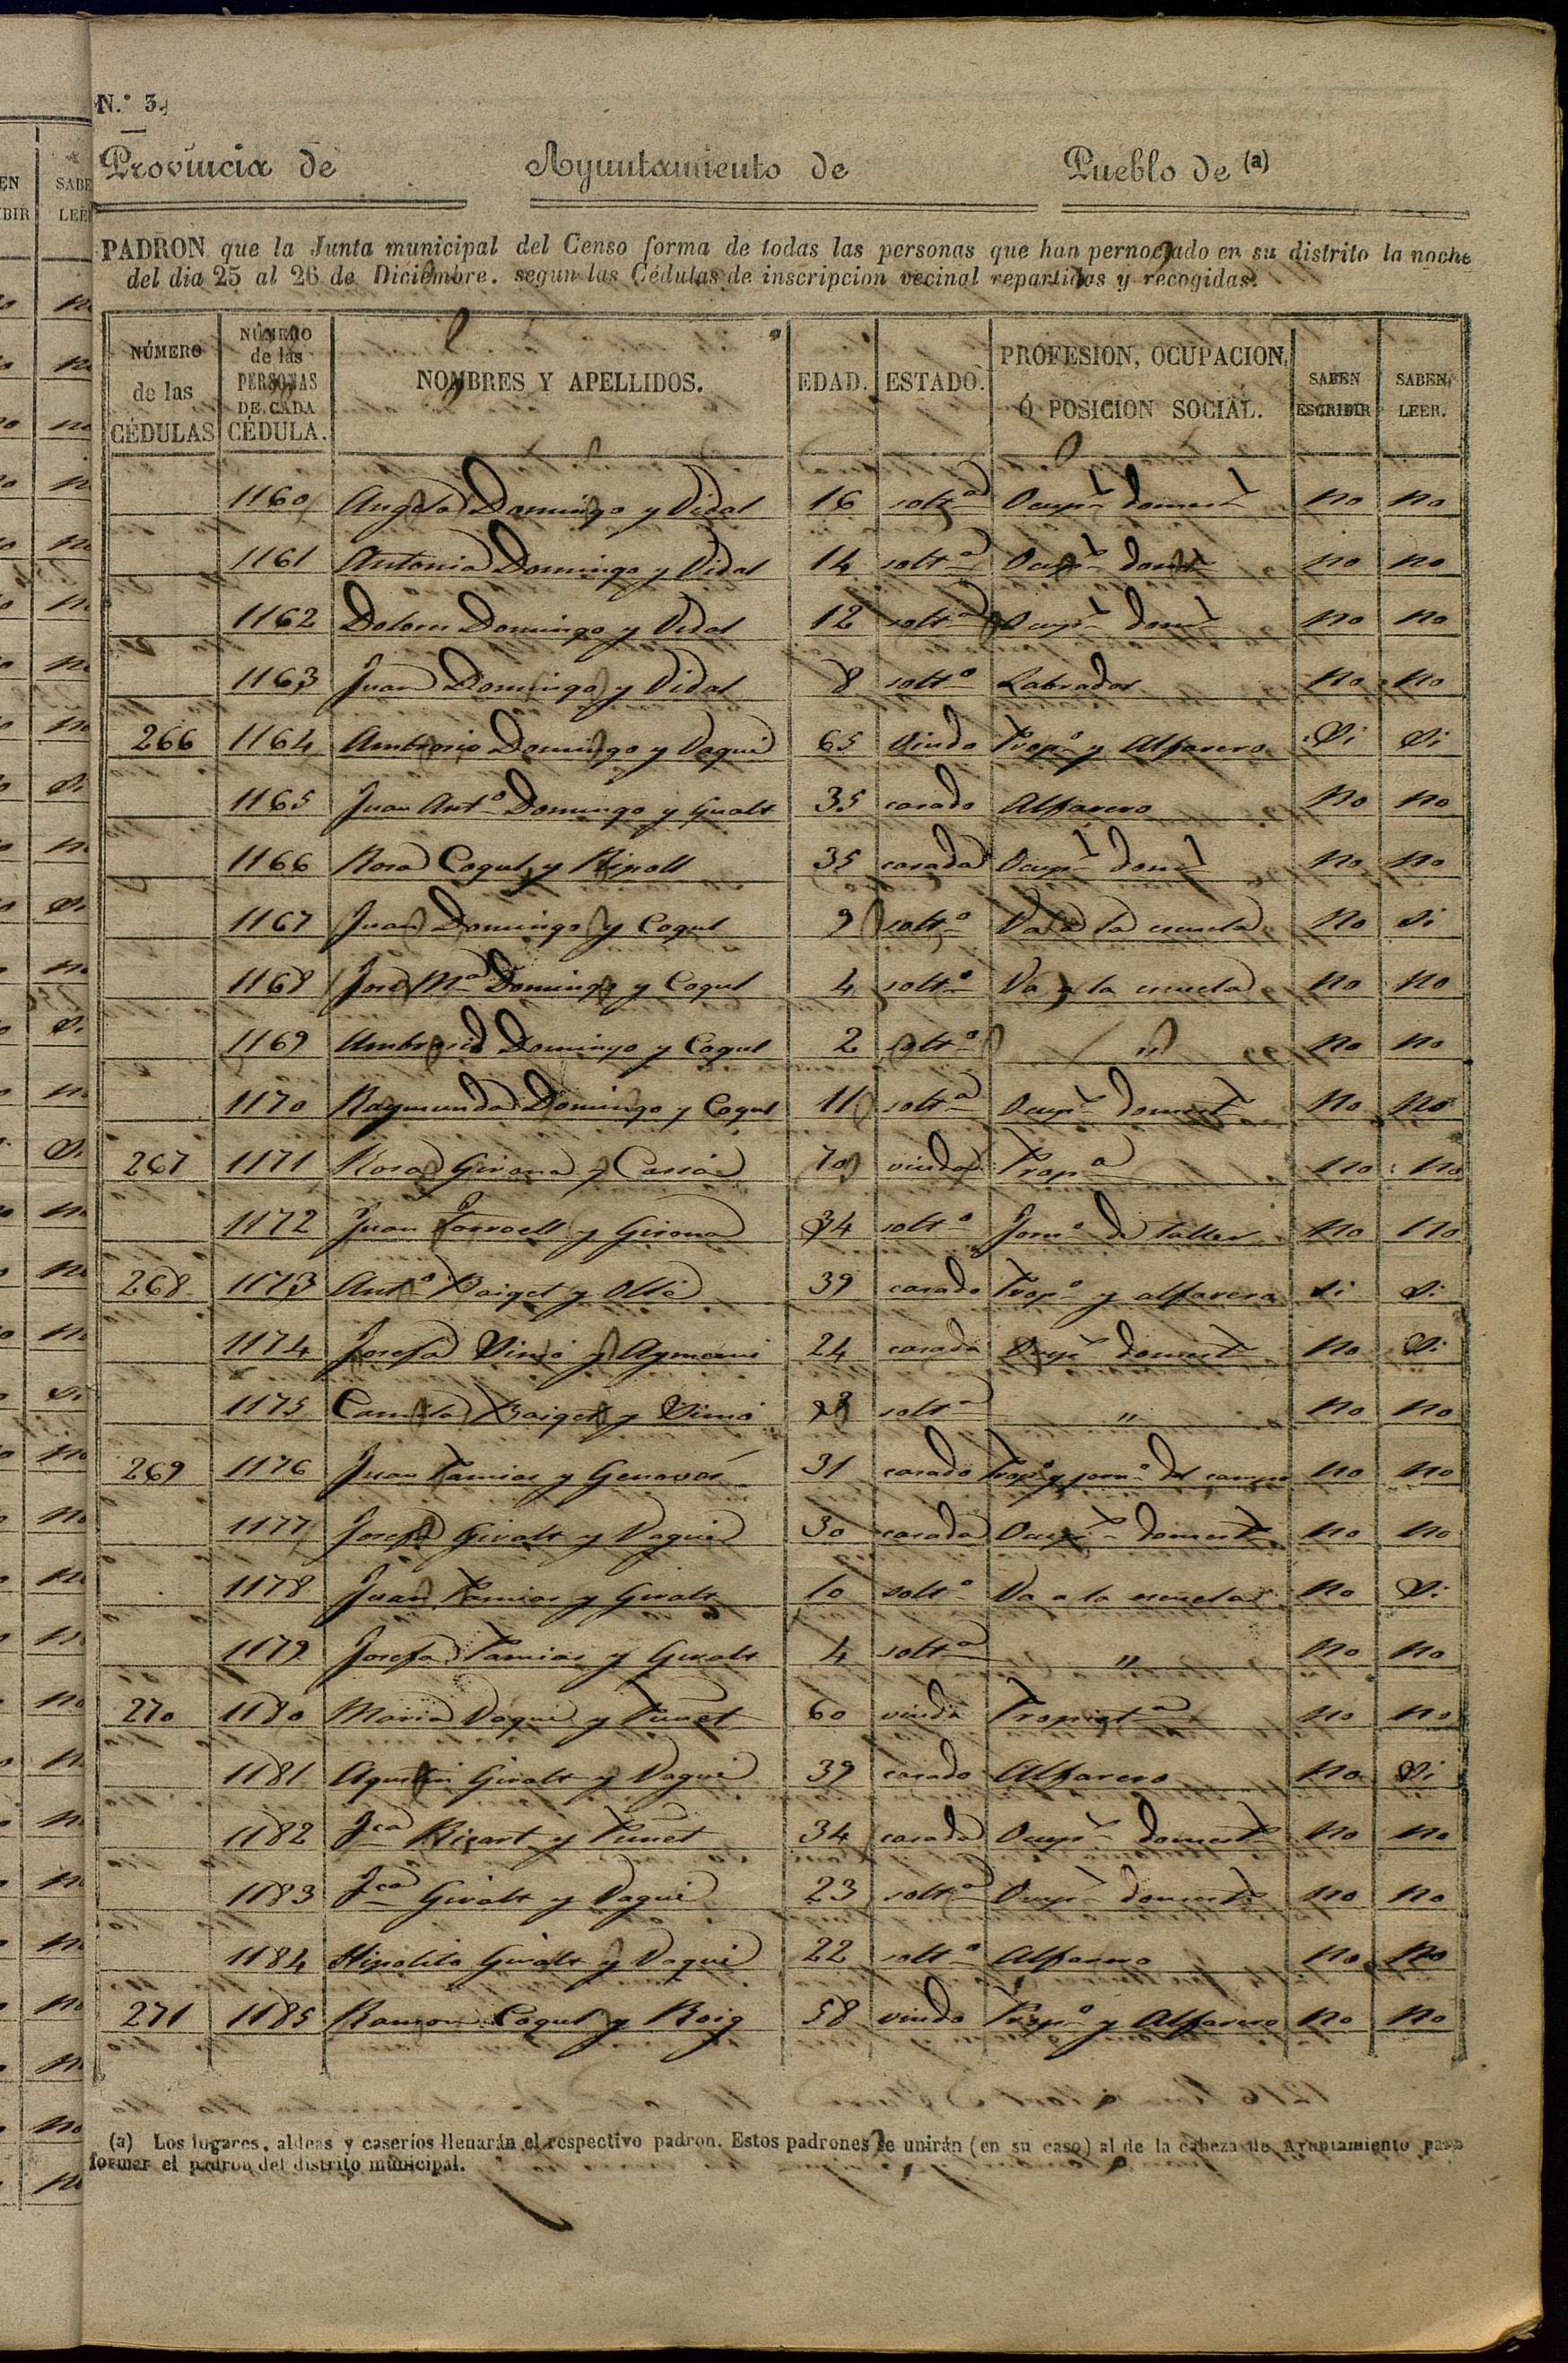 N.º 3.
Provincia de Ayuntamiento de Pueblo de (a)
PADRON que la Junta municipal del Censo forma de todas las personas que han pernoctado en su distrito la noche
del dia 25 al 26 de Diciembre. segun las Cédulas de inscripcion vecinal repartidas y recogidas.
NÚMERO de las CÉDULAS NÚMERO de las PERSONAS DE CADA CÉDULA. NOMBRES Y APELLIDOS. EDAD. ESTADO. PROFESION, OCUPACION, Ó POSICION SOCIAL. SABEN ESCRIBIR SABEN LEER.
1160 Angela Domingo y Vidal 16 solt.a Ocup.n domest no no
1161 Antonia Domingo y Vidal 14 solt.a Ocup.n domt no no
1162 Dolores Domingo y Vidal 12 solt.a Ocup.n domt no no
1163 Juan Domingo y Vidal 8 solt.o Labrador no no
266 1164 Ambrosio Domingo y Vaqué 65 Viudo Prop.o y Alfarero Si Si
1165 Juan Ant.o Domingo y Gualt 35 casado Alfarero No no
1166 Rosa Cogul y Ripoll 35 casada Ocup.n domt no no
1167 Juan Domingo y Cogul 9 solt.o Va a la escuela No si
1168 José M.a Domingo y Cogul 4 solt.o Va a la escuela no no
1169 Ambrosio Domingo y Cogul 2 solt.o " no no
1170 Raymunda Domingo y Cogul 11 solt.a Ocup.n domest No No
267 1171 Rosa Girona y 70 viuda Prop.a no no
1172 Juan y Girona 34 solt.o Jorn.o de taller No no
268 1173 Ant.o Baiget y Ollé 39 casado Prop.o y alfarero si si
1174 Josefa Simó y Aymamí 24 casada Ocup.n domest No Si
1175 Camila Baiget y Simó solt.a " No no
269 1176 Juan Tamias y Genovés 31 casado Prop.o y jorn.o del campo no no
1177 Josefa Giralt y Vaqué 30 casada Ocup.n domest no no
1178 Juan Tamias y Giralt 10 solt.o Va a la escuela no Si
1179 Josefa Tamias y Giralt 4 solt.a " no no
270 1180 Maria Vaqué y Punet 60 viuda Propiet.a no no
1181 Agustin Giralt y Vaqué 39 casado Alfarero no Si
1182 F.ca Ricart y Punet 34 casada Ocup.n domest no no
1183 F.ca Giralt y Vaqué 23 solt.a Ocup.n domest no no
1184 Hipolito Giralt y Vaqué 22 solt.o Alfarero no no
271 1185 Ramon Cogul y Roig 58 viudo Prop.o y Alfarero no no
(a) Los lugares, aldeas y caseríos llenarán el respectivo padron. Estos padrones se unirán (en su caso) al de la cabeza de Ayuntamiento para
formar el padron del distrito municipal.